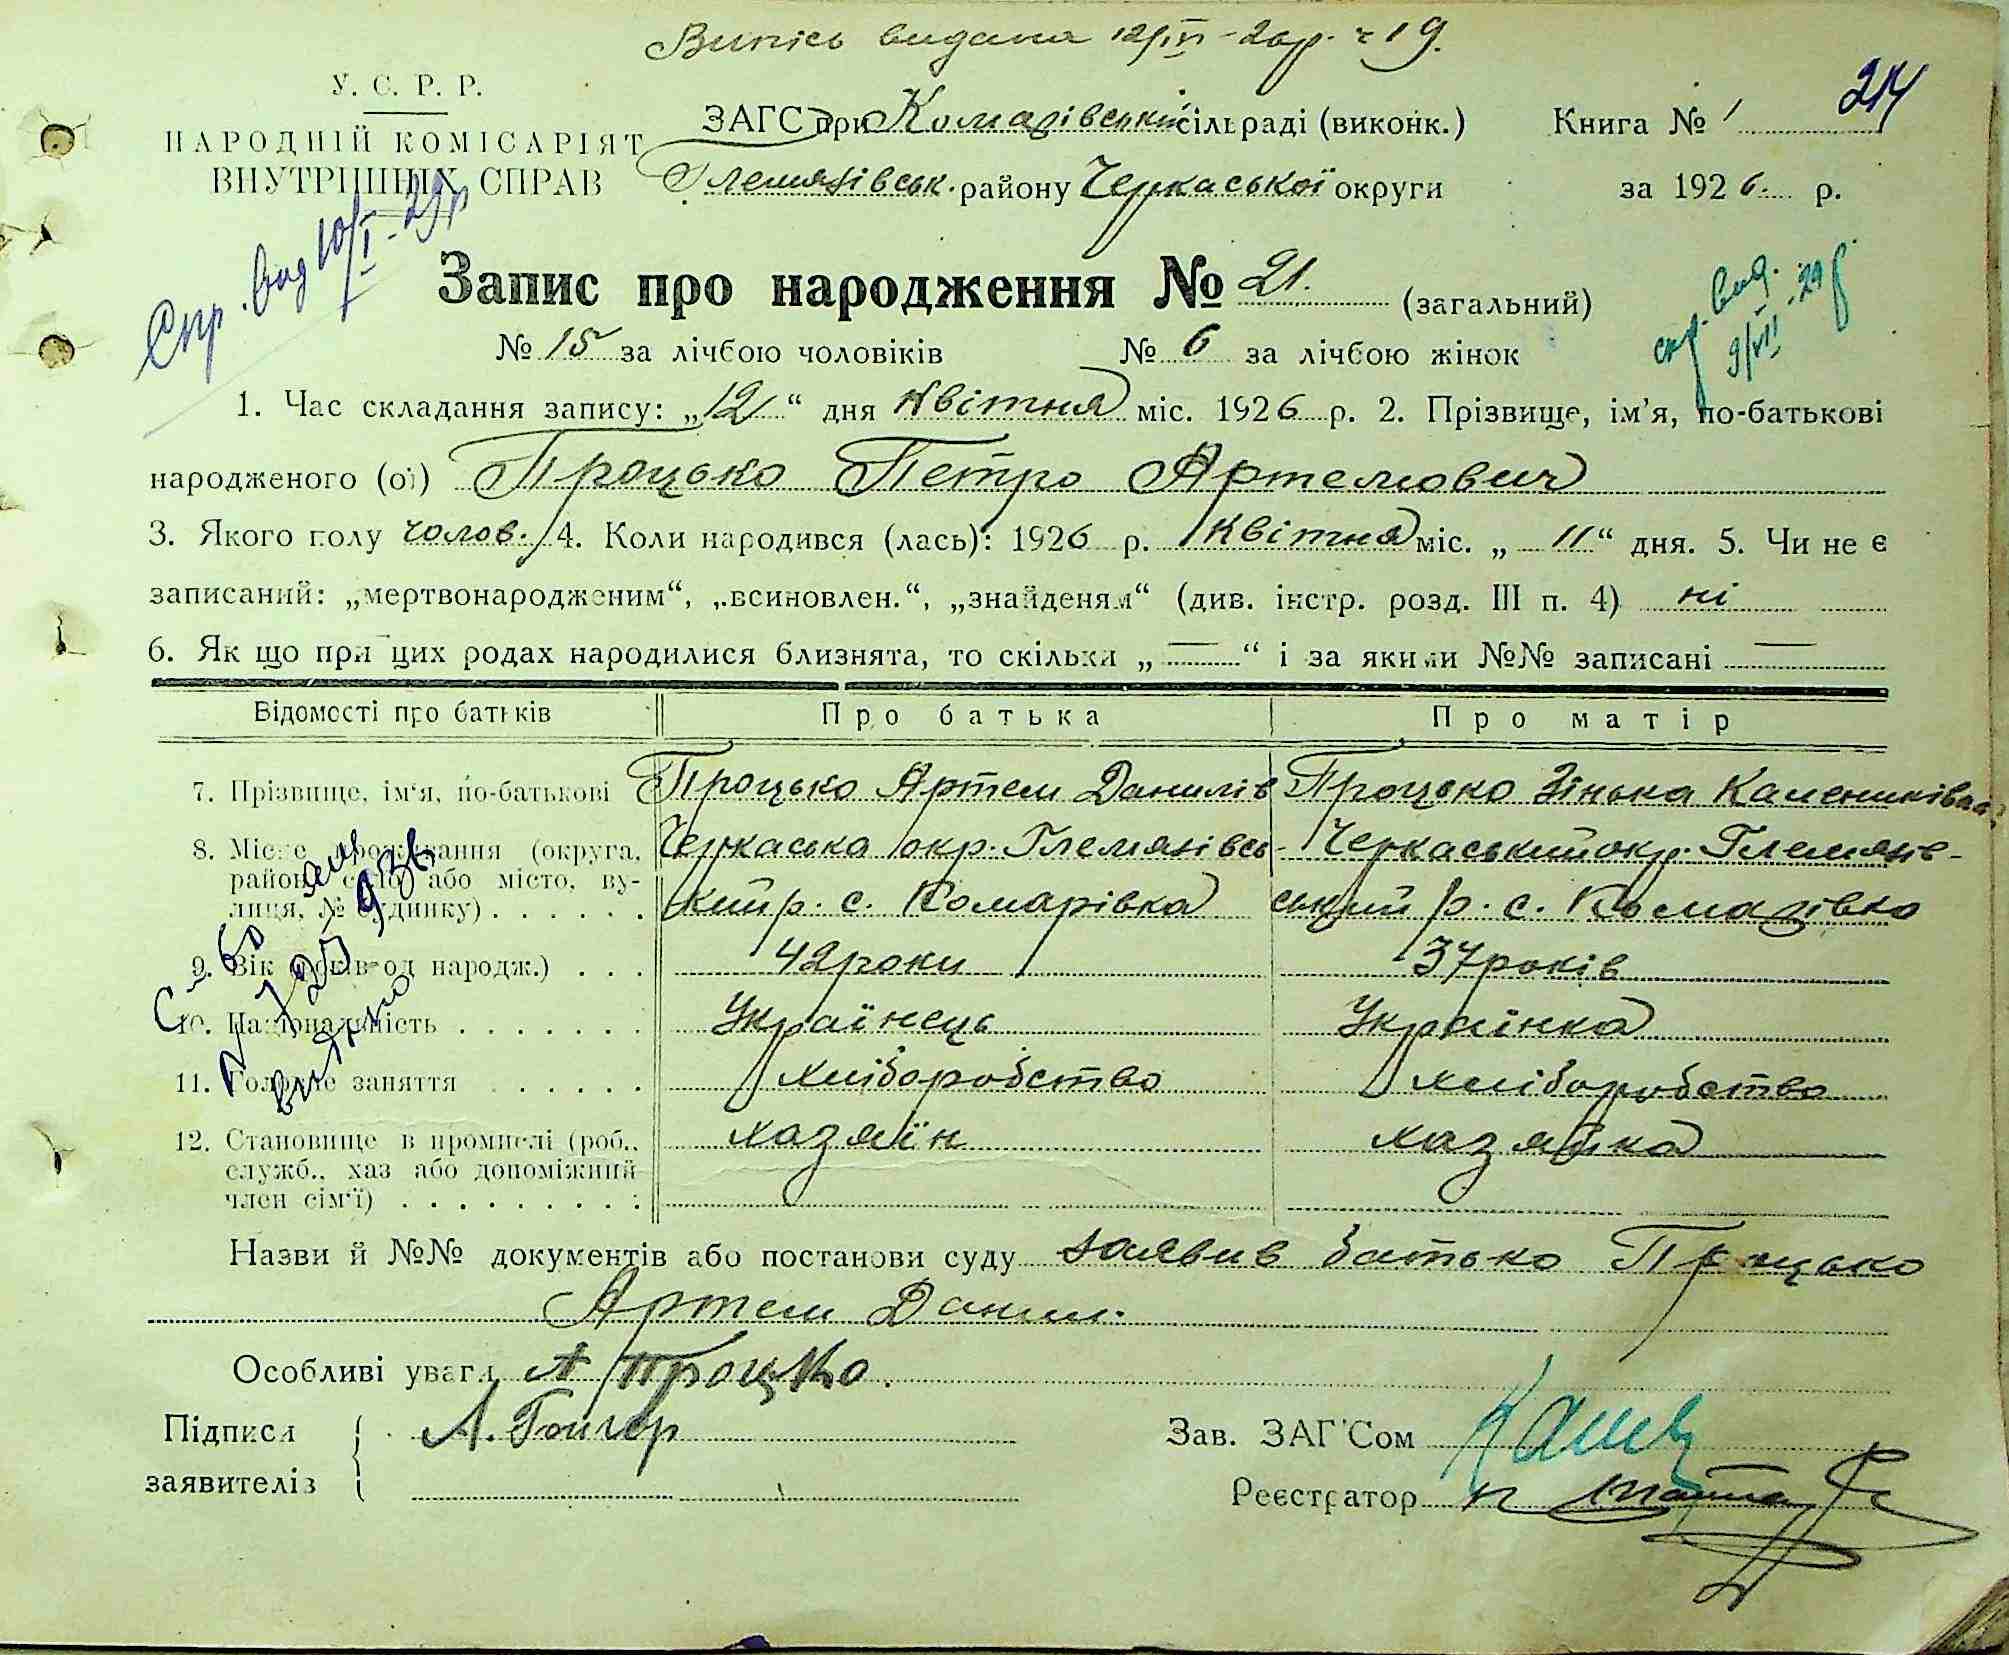 Випись видана 12/IV-26р. ч 19.
214
У. С. Р. Р.
НАРОДНІЙ КОМІСАРІЯТ
ВНУТРІШНІХ СПРАВ
ЗАГС при Комарівській сільраді (виконк.) Книга № 1
Глемязівськ. району Черкаської округи за 1926. р.
Спр. вид 10/I-29р
Запис про народження № 21. (загальний)
спр. вид.
9/VII-29р.
№ 15 за лічбою чоловіків № 6 за лічбою жінок
1. Час складання запису: „12“ дня квітня міс. 1926 р. 2. Прізвище, ім’я, по-батькові
народженого (ої) Процько Петро Артемович
3. Якого полу чолов. 4. Коли народився (лась): 1926 р. квітня міс. „ 11 “ дня. 5. Чи не є
записаний: „мертвонародженим“, „всиновлен.“, „знайденям“ (див. інстр. розд. III п. 4) ні
6. Як що при цих родах народилися близнята, то скільки „ — “ і за якими №№ записані —
Відомості про батьків Про батька Про матір
7. Прізвище, ім’я, по-батькові Процько Артем Данилів Процько Зінька Калениківна
8. Місце проживання (округа, Черкаська окр. Глемязівсь- Черкаський окр. Глемязів-
район, село або місто, ву- кий р. с. Комарівка ський р. с. Комарівка
лиця, № будинку)
9. Вік (років од народж.) 42 роки 37 років
10. Національність Українець Українка
11. Головне заняття хліборобство хліборобство
12. Становище в промислі (роб., хазяїн хазяйка
служб., хаз або допоміжний
член сім’ї)
Назви й №№ документів або постанови суду заявив батько Процько
Артем Данил.
Особливі уваги А Процко.
Підписи
заявителів
Зав. ЗАГСом
Реєстратор